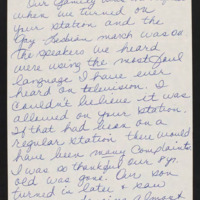 Our family was
when we turned on
your station and the
Gay Lesbian march was on.
The speakers we heard
were using the most foul
language I have ever
heard on television. I
couldn't believe it was
allowed on your station.
If that had been on a
regular station there would
have been many complaints
I was so thankful our 8 yr.
old was gone. Our son
turned in later & saw
almost